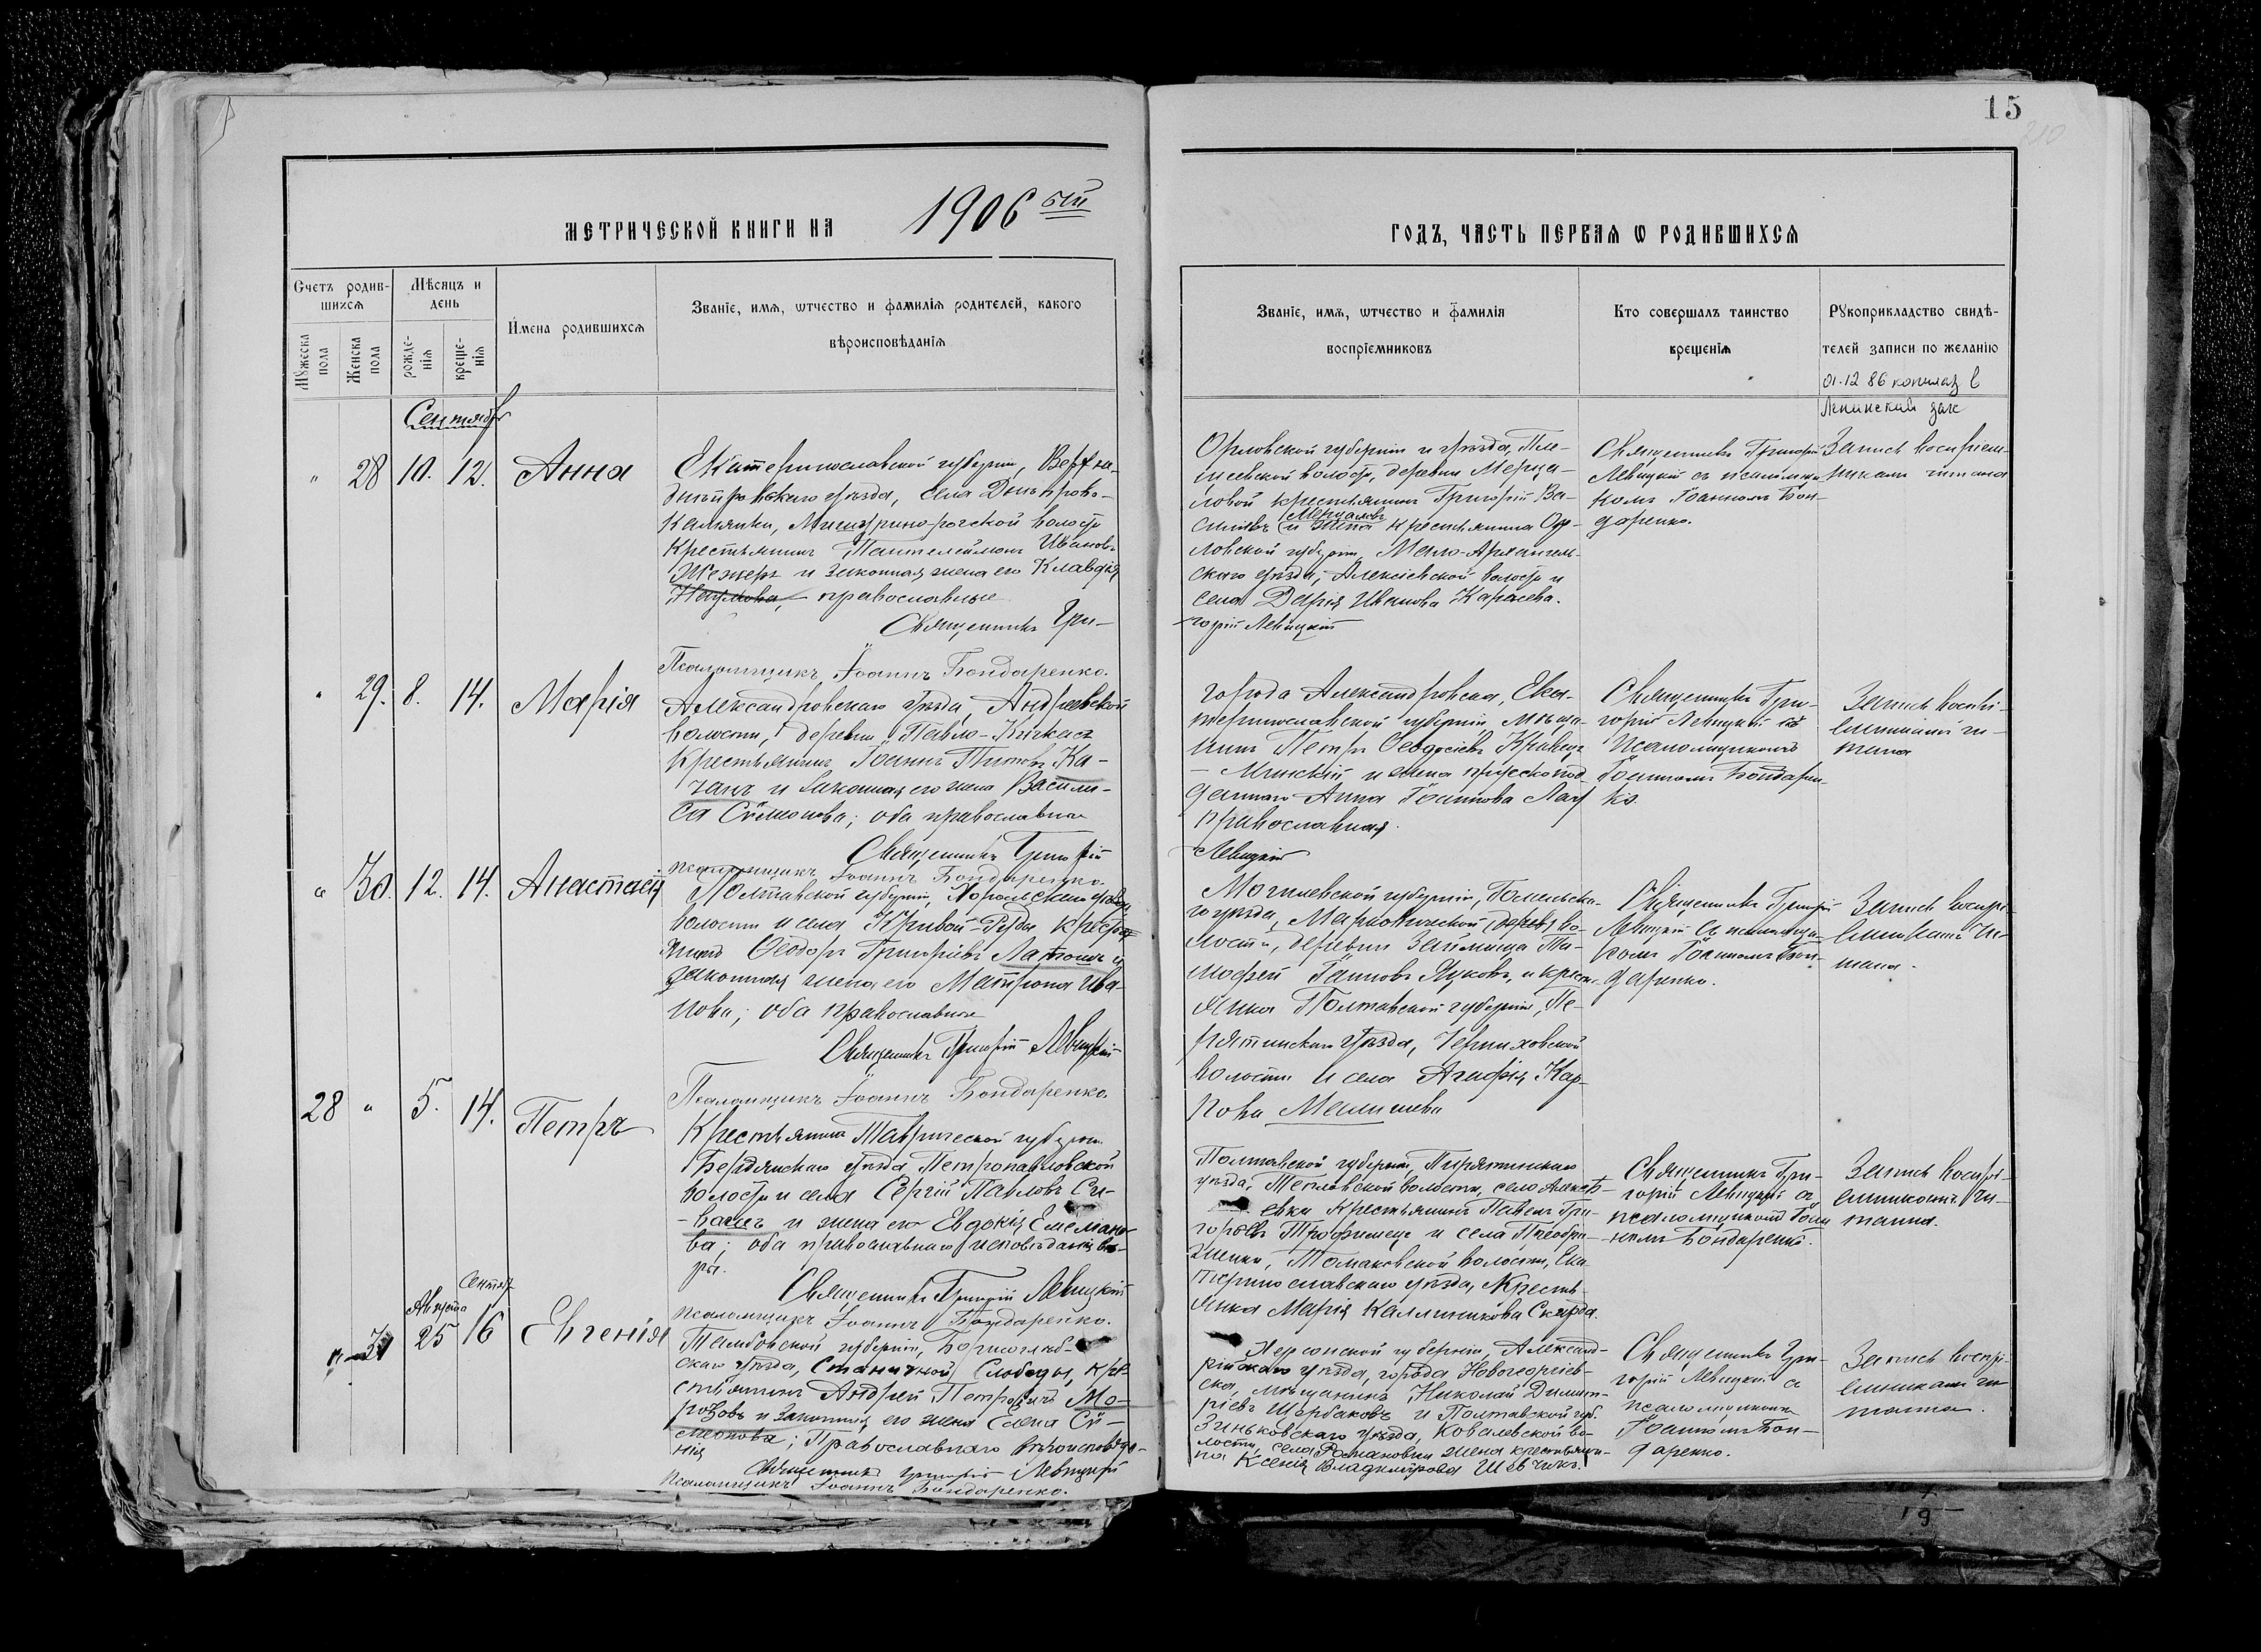 15
МЕТРИЧЕСКОЙ КНИГИ НА 1906 ой
ГОДЪ, ЧАСТЬ ПЕРВАЯ Ѡ РОДИВШИХСЯ
Счетъ родив-
шихся
Мѣсяцъ и
день
Мужеска
пола
Женска
пола
рожде-
нія
креще-
нія
Имена родившихся
Званіе, имя, ѡтчество и фамилія родителей, какого
вѣроисповѣданія
Званіе, имя, ѡтчество и фамилія
воспріемниковъ
Кто совершалъ таинство
крещенія
Рукоприкладство свидѣ-
телей записи по желанію
01.12 86
Сентябрь
" 28 10. 12. Анна
Екатеринославской губерніи, Верхне-
днѣпровскаго уѣзда, села Днѣпрово-
Каменки, Мишурино-рогской волости
Крестьянинъ Пантелеймонъ Ивановъ
и законная жена его Клавдія
Наумова, православные
Священникъ Гри-
Псаломщикъ Іоаннъ Бондаренко.
Орловской губерніи и уѣзда,
волости, деревни
крестьянинъ Григорій Ва-
сильевъ Мерцаловъ и крестьянина Ор-
ловской губерніи Мало-Архангель-
скаго уѣзда, Алексѣевской волости и
села Дарія Иванова Карѣева.
горій Левицкій
Священникъ Григорій
Левицкій съ псаломщи-
комъ Іоанномъ Бон-
даренко.
Запись воспріем-
никамъ читана
" 29. 8. 14. Марія
Александровскаго уѣзда, Андреевской
волости, деревни Павло-Кичкасъ
Крестьянинъ Іоаннъ Титовъ Ка-
чанъ и законная его жена Васили-
са Сѵмеонова; оба православные
Священникъ Григорій
псаломщикъ Іоаннъ Бондаренко.
города Александровска, Ека-
теринославской губерніи, мѣща-
нинъ Петръ Ѳеодосіевъ
и жена прусскопод
даннаго Анна Іоаннова
православная.
Левицкій
Священникъ Гри-
горій Левицкій съ
псаломщикомъ
Іоанномъ Бондарен-
ко.
Запись воспрі-
емникамъ чи-
тана
" 30. 12. 14. Анастасія
Полтавской губерніи, Хорольскаго уѣзда,
волости и села Кривой-Руды крестья-
нинъ Ѳеодоръ Григоріевъ Латошъ и
законная жена его Матрона Ива-
нова; оба православные
Священникъ Григорій Левицкій
Псаломщикъ Іоаннъ Бондаренко.
Могилевской губерніи, Гомельска-
го уѣзда, Марковической во-
лости, деревни Займища Ти-
мофей Іанновъ Жуковъ, и крест-
янка Полтавской губерніи, Пи-
рятинскаго уѣзда, Черняховской
волости и села Агафія Кар-
пова
Священникъ Григорій
Левицкій съ псаломщи-
комъ Іоанномъ Бон-
даренко.
Запись воспрі-
емникамъ чи-
тана.
28 " 5. 14. Петръ
Крестьянинъ Таврической губерніи
Бердянскаго уѣзда, Петропавловской
волости и села Сергій Павловъ Си-
вашъ и жена его Евдокія Емельяно-
ва; оба православнаго исповѣданія вѣ-
ры.
Священникъ Григорій Левицкій
псаломщикъ Іоаннъ Бондаренко.
Полтавской губерніи, Пирятинскаго
уѣзда, волости, село Алексѣ-
евка крестьянинъ Павелъ Гри-
горьевъ Трофименко и села Преобра-
женки, Томаковской волости, Ека-
теринославскаго уѣзда, Кресть-
янка Марія Каллиникова Скирда.
Священникъ Гри-
горій Левицкій съ
псаломщикомъ Іоан-
номъ Бондаренко.
Запись воспрі-
емникамъ чи-
тана.
Августа Сентяб.
" 31 25 16 Евгенія
Тамбовской губерніи, Борисоглѣб-
скаго уѣзда, Станичной Слободы, кре-
стьянинъ Андрей Петровичъ Мо-
розовъ и законная его жена Елена Сѵ-
меонова; Православнаго вѣроисповѣда-
нія
Священникъ Григорій Левицкій
псаломщикъ Іоаннъ Бондаренко.
Херсонской губерніи, Александ-
рійскаго уѣзда, города Новогеоргіев-
ска, мѣщанинъ Николай Димит-
ріевъ Щербаковъ и Полтавской губ.
Зѣньковскаго уѣзда, Ковалевской во-
лости, села Романовки жена крестьяни-
на Ксенія Владимірова Шевченко.
Священникъ Гри-
горій Левицкій съ
псаломщикомъ
Іоанномъ Бон-
даренко.
Запись воспрі-
емникамъ чи-
тана.